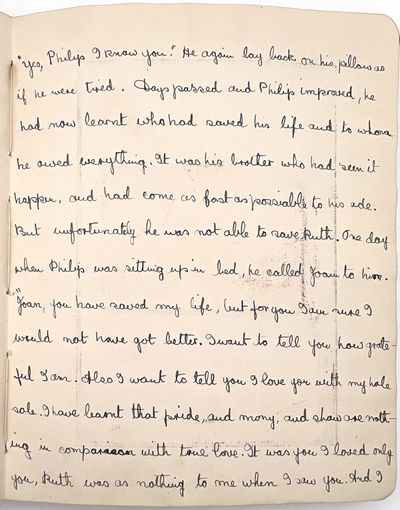 "Yes, Philip I know you." He again lay back on his pillow as
if he were tired. Days passed and Philip improved, he
had now learnt who had saved his life and to whom
he owed everything. It was his brother who had seen it
happen, and had come as fast as possiable to his side.
But unfortunatly he was not able to save Ruth. One day
when Philip was sitting up in bed, he called Joan to him.
"Joan, you have saved my life, but for you I am sure I
would not have got better. I want to tell you how grate-
ful I am. Also I want to tell you I love you with my hole
sole. I have learnt that pride, and mony, and show are noth-
ing in comparison with true love. It was you I loved only
you, Ruth was as nothing to me when I saw you. And I